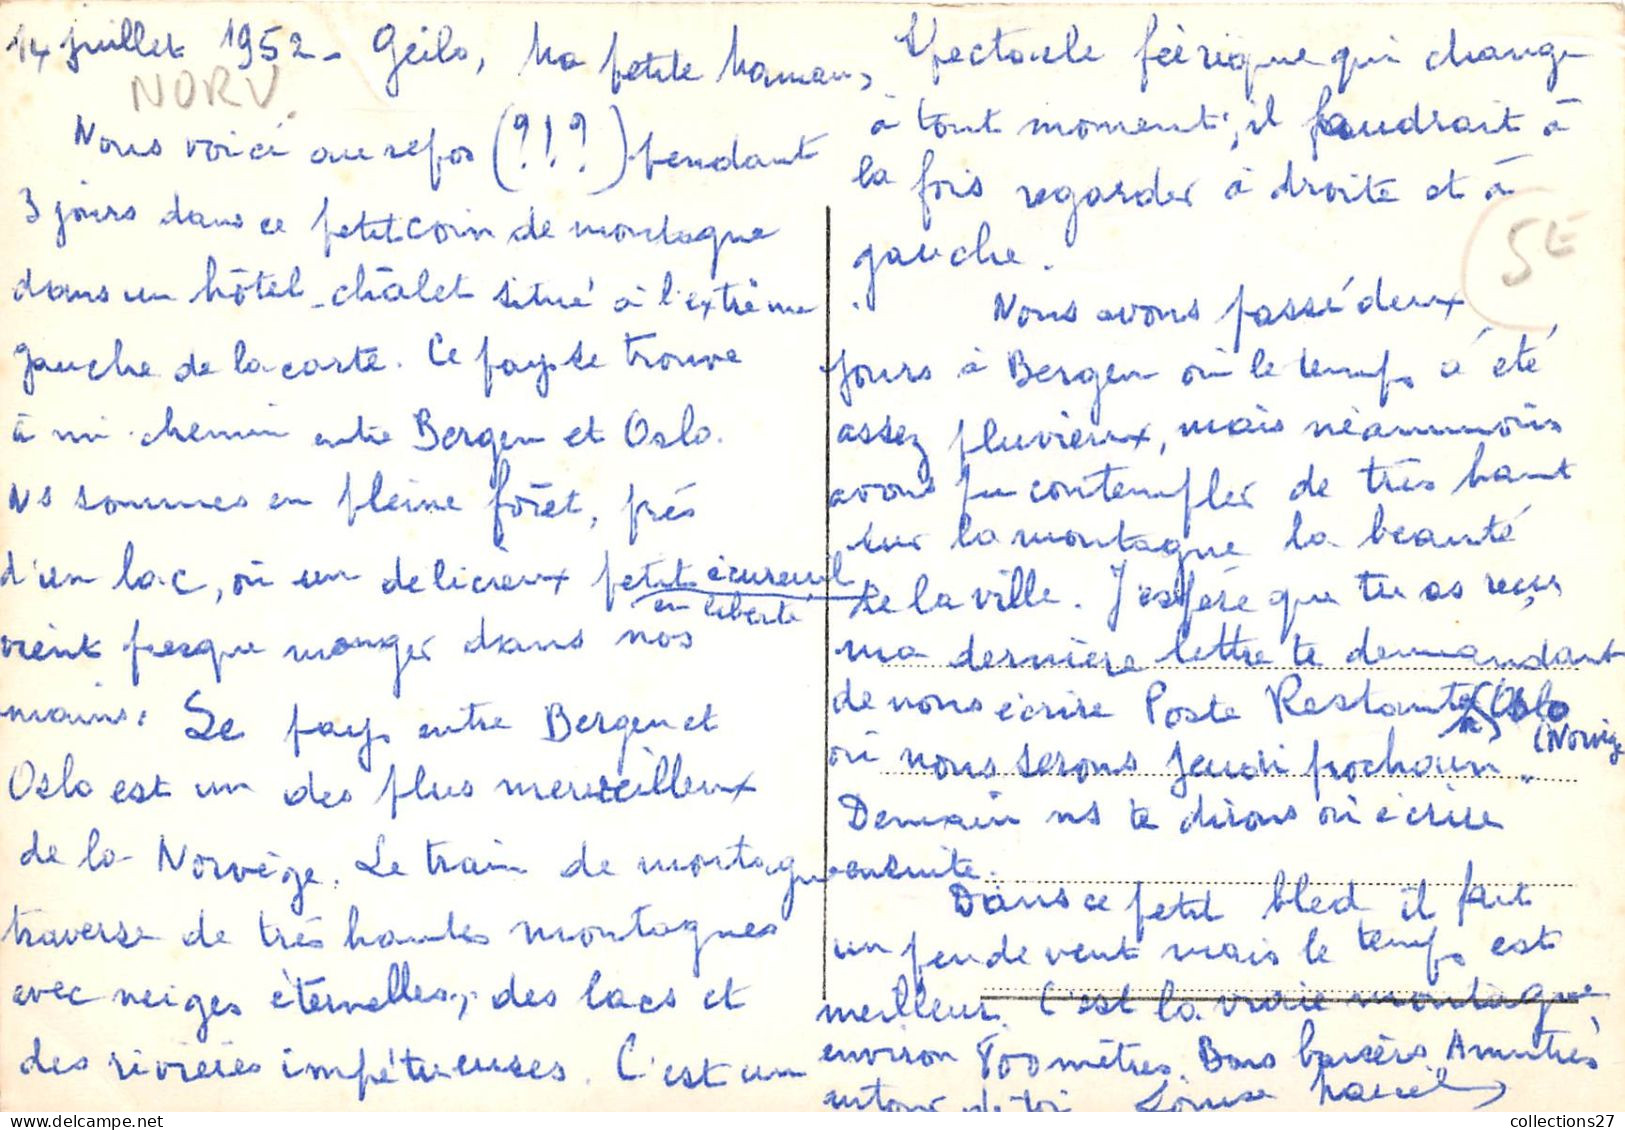 14 juillet 1952 - Geilo, Ma petite Maman,
NORV.
Nous voici au repos (?!?) pendant
3 jours dans ce petit coin de montagne
dans un hôtel-châlet situé à l'extrême
gauche de la carte. Ce pays se trouve
à mi-chemin entre Bergen et Oslo.
Ns sommes en pleine forêt, près
d'un lac, où un délicieux petit écureuil
en liberté
vient presque manger dans nos
mains. Le pays entre Bergen et
Oslo est un des plus merveilleux
de la Norvège. Le train de montagne
traverse de très hautes montagnes
avec neiges éternelles, des lacs et
des rivières impétueuses. C'est un
spectacle féérique qui change
à tout moment, il faudrait à
la fois regarder à droite et à
gauche.
5E
Nous avons passé deux
jours à Bergen où le temps a été
assez pluvieux, mais néanmoins
avons pu contempler de très haut
sur la montagne la beauté
de la ville. J'espère que tu as reçu
ma dernière lettre te demandant
de nous écrire Poste Restante à Oslo
(Norvège
où nous serons jeudi prochain.
Demain ns te dirons où écrire
ensuite.
Dans ce petit bled il fait
un peu de vent mais le temps est
meilleur. C'est la vraie montagne
environ 800 mètres. Bons baisers. Amitiés
autour de toi Louise Marcel
collections27